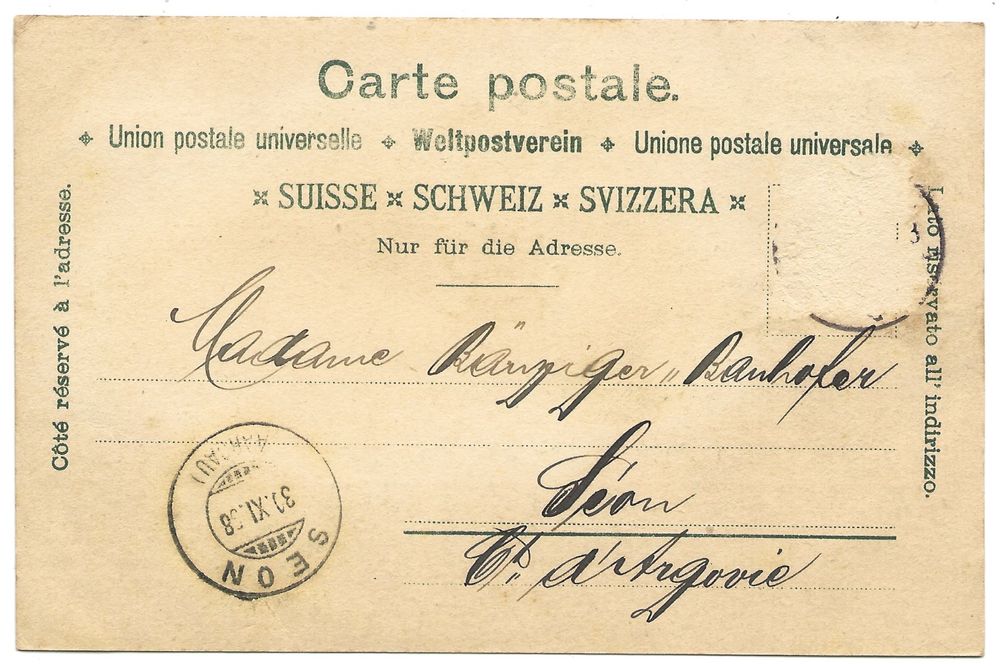 Carte postale.
Union postale universelle Weltpostverein Unione postale universale
SUISSE SCHWEIZ SVIZZERA
Nur für die Adresse.
Côté réservé à l'adresse.
Lato riservato all' indirizzo.
Madame Bänziger „ Banhofer
Séon
Ct. d'Argovie
SEON
(AARGAU)
XI.98